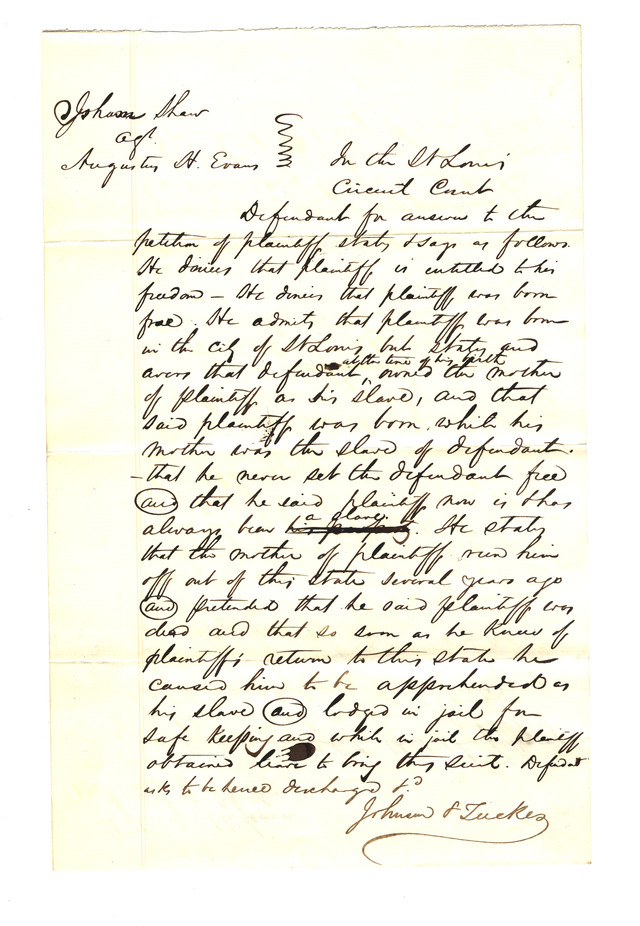 Shaw
agt.
Augustus H. Evans
In the St Louis
Circuit Court
Defendant for answer to the
petition of plaintiff states & says as follows.
He denies that plaintiff is entitled to his
freedom – He denies that plaintiff was born
free. He admits that plaintiff was born
in the city of St Louis but states and
at the time of his birth
avers that defendant owned the mother
of plaintiff as his slave, and that
said plaintiff was born, while his
mother was the slave of defendant.
– that he never set the defendant free
and that he said plaintiff now is & has
a slave
always been his property. He states
that the mother of plaintiff run him
off out of this state several years ago
and pretended that he said plaintiff was
dead and that so soon as he knew of
plaintiff's return to this state he
caused him to be apprehended as
his slave and lodged in jail for
safe keeping and while in jail this plaintiff
obtained leave to bring this suit. Defendant
asks to be hence discharged &c
Johnson & Tucker